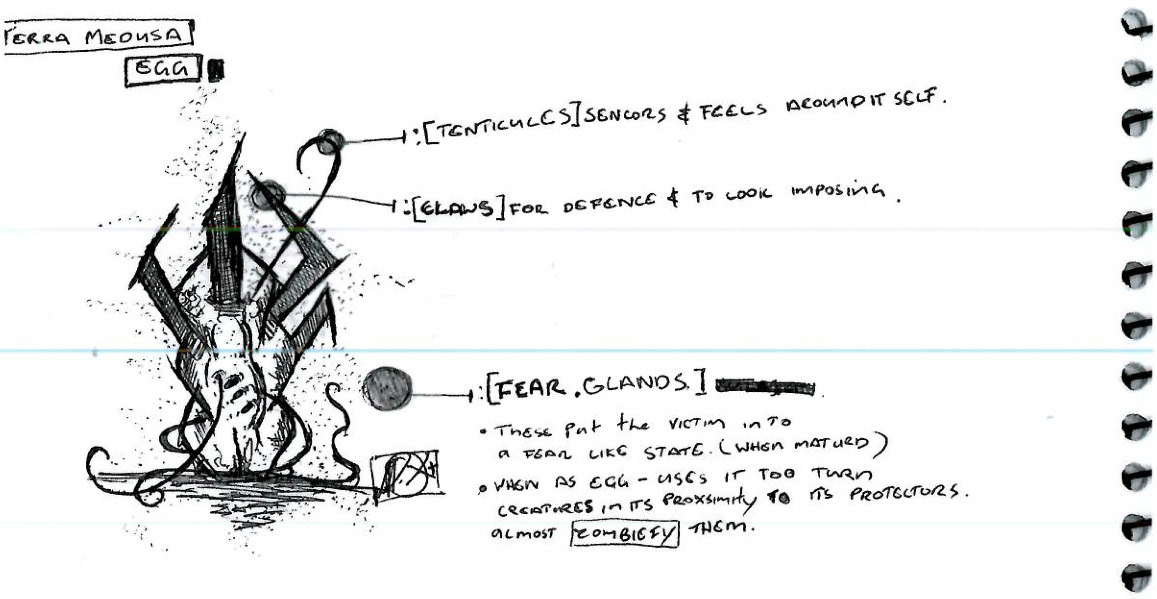 TERRA MEDUSA
EGG
:[TENTICULES] SENCORS & FEELS AROUND IT SELF.
:[CLAWS] FOR DEFENCE & TO LOOK IMPOSING.
:[FEAR.GLANDS.]
• THESE PUT THE VICTIM INTO
A FEAR LIKE STATE. (WHEN MATURD)
• WHEN AS EGG - USES IT TOO TURN
CREATURES IN ITS PROXSIMITY TO ITS PROTECTORS.
ALMOST ZOMBIEFY THEM.